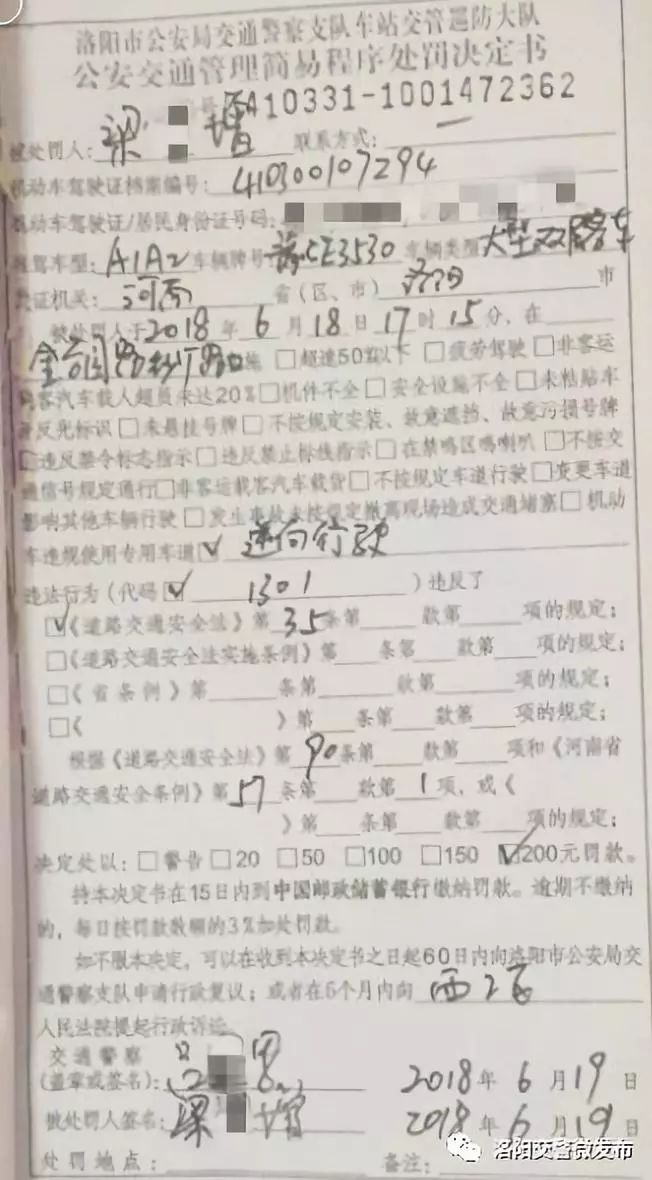 洛阳市公安局交通警察支队车站交管巡防大队
公安交通管理简易程序处罚决定书
410331-1001472362
被处罚人：梁 增 联系方式：
机动车驾驶证档案编号：410300107294
机动车驾驶证/居民身份证号码：
准驾车型：A1A2 车辆牌号 CE3530 车辆类型 大型双层客车
发证机关：河南 省（区、市） 洛阳 市
被处罚人于2018年6月18日17时15分，在
金谷园路 路口 施 □超速50%以下 □疲劳驾驶 □非客运
载客汽车载人超员未达20% □机件不全 □安全设施不全 □未粘贴车
身反光标识 □未悬挂号牌 □不按规定安装、故意遮挡、故意污损号牌
□违反禁令标志指示 □违反禁止标线指示 □在禁鸣区鸣喇叭 □不按交
通信号规定通行 □非客运载客汽车载货 □不按规定车道行驶 □变更车道
影响其他车辆行驶 □发生事故未按规定撤离现场造成交通堵塞 □机动
车违规使用专用车道 ☑ 逆向行驶
违法行为（代码 ☑ 1301 ）违反了
☑《道路交通安全法》第35条第 款第 项的规定；
□《道路交通安全法实施条例》第 条第 款第 项的规定；
□《省条例》第 条第 款第 项的规定；
□《 》第 条第 款第 项的规定；
根据《道路交通安全法》第90条第 款第 项和《河南省
道路交通安全条例》第57条第 款第1项，或《
》第 条第 款第 项的规定；
决定处以：□警告 □20 □50 □100 □150 ☑200元罚款。
持本决定书在15日内到中国邮政储蓄银行缴纳罚款。逾期不缴纳
的，每日按罚款数额的3%加处罚款。
如不服本决定，可以在收到本决定书之日起60日内向洛阳市公安局交
通警察支队申请行政复议；或者在6个月内向 西工区
人民法院提起行政诉讼。
交通警察
（盖章或签名）： 2018年6月19日
被处罚人签名：梁 增 2018年6月19日
处罚地点： 备注：
洛阳交警微发布